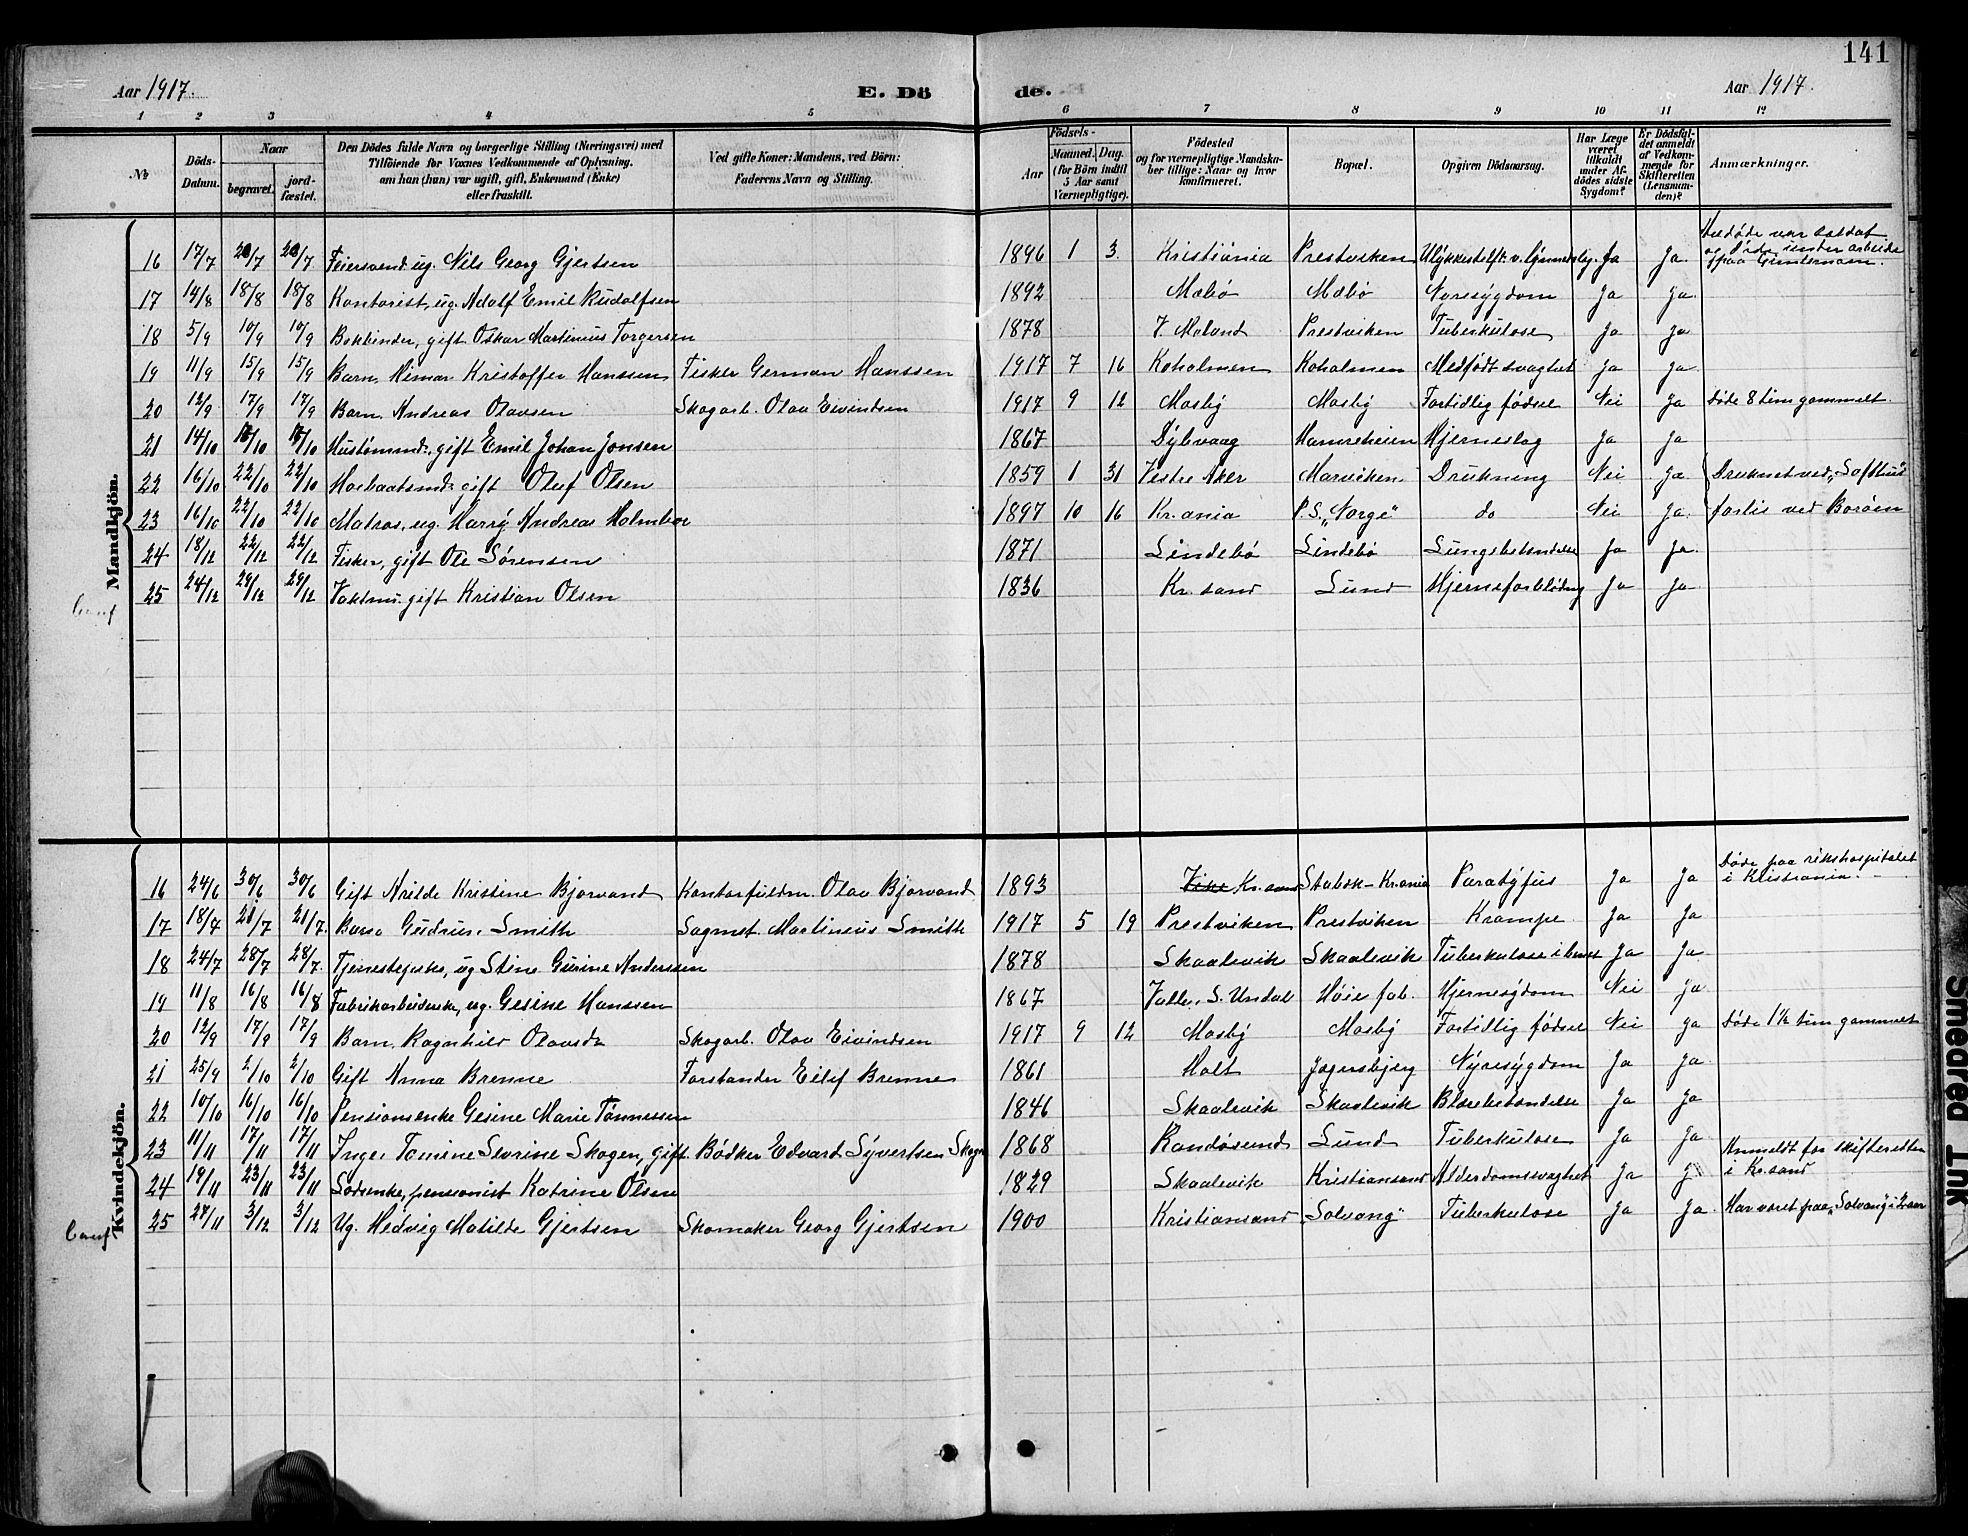 141
Aar 1917. E. Dö de. Aar 1917.
1 2 3 4 5 6 7 8 9 10 11 12
№ Döds-Datum. Naar begravet. jordfæstet. Den Dödes fulde Navn og borgerlige Stilling (Næringsvei) med Tilföiende for Voxnes Vedkommende af Oplysning. om han (hun) var ugift, gift, Enkemand (Enke) eller fraskilt. Ved gifte Koner: Mandens, ved Börn: Faderens Navn og Stilling. Födsels- Aar Maaned. Dag. (for Börn indtil 5 Aar samt Værnepligtige). Födested og for værnepligtige Mandskaber tillige: Naar og hvor konfirmeret. Bopæl. Opgiven Dödsaarsag. Har Læge været tilkaldt under Afdödes sidste Sygdom? Er Dödsfaldet anmeldt af Vedkommende for Skifteretten (Lensmanden)? Anmærkninger.
Mandkjön.
16 17/7 20/7 20/7 Feiersvend ug. Nils Georg Gjertsen 1896 1 3. Kristiania Prestviken Ja Ja.
17 14/8 18/8 18/8 Kontorist, ug. Adolf Emil Rudolfsen 1892 Mæbø Mæbø Nyresygdom Ja Ja.
18 5/9 10/9 10/9 Bokbinder, gift Oskar Martinius Torgersen 1878 Prestviken Tuberkulose Ja Ja
19 11/9 15/9 15/9 Barn Kristoffer Hanssen Fisker German Hanssen 1917 7 16 Koholmen Koholmen Medfødt svaghet Ja Ja
20 12/9 17/9 17/9 Barn Andreas Olavsen Skogarb. Olav Eivindsen 1917 9 12 Mosby Mosby Fortidlig fødsel Nei Ja Døde 8 tim gammelt.
21 14/10 gift Emil Johan Jonsen 1867 Dybvaag Hamreheien Hjerneslag Ja Ja
22 16/10 22/10 22/10 gift Oluf Olsen 1859 1 31 Vestre Aker Marviken Drukning Nei Ja Druknet ved „Safthus"
23 16/10 22/10 22/10 Matros, ug. Harry Andreas Holmboe 1897 10 16 Kr.ania P.S. „Norge" do Nei Ja. forlis ved Borøen
24 18/12 22/12 22/12 Fisker, gift Ole Sørensen 1871 Lindebø Lindebø Lungebetændelse Ja Ja.
25 24/12 29/12 29/12 gift Kristian Olsen 1836 Kr.sand Lund Hjerneforblødning Ja Ja
Kvindekjön.
Døde paa rikshospitalet
16 24/6 30/6 30/6 Gift Kristine Bjorvand Kontorfuldm. Olav Bjorvand 1893 Kr.sand Stabek - Kr.ania Paratyfus Ja Ja i Kristiania.
17 18/7 21/7 21/7. Barn Gudrun Smith Sagmst. Martinius Smith 1917 5 19 Prestviken Prestviken Krampe Ja Ja
18 24/7 28/7 28/7. Tjenestepike, ug Stine Gurine Anderssen 1878 Skaalevik Skaalevik Tuberkulose i benet Ja Ja.
19 11/8 16/8 16/8 Fabrikarbeiderske, ug. Gesine Hanssen 1867 Valle, S. Undal Høie fab. Hjernesygdom Nei Ja
20 12/9 17/9 17/9 Barn Ragnhild Olavsdr Skogarb. Olav Eivindsen 1917 9 12 Mosby Mosby Fortidlig fødsel Nei Ja Døde 1½ tim gammelt
21 25/9 2/10 2/10 Gift Anna Brenne Forstander Eilif Brenne 1861 Holt Jegersbjerg Nyresygdom Ja Ja.
22 10/10 16/10 16/10 Pensionsenke Gesine Marie Tønnessen 1846 Skaalevik Skaalevik Blærebetændelse Ja Ja
23 11/11 17/11 17/11 Inger Tomine Sevrine Skogen, gift. Bødker Edvard Syvertsen Skogen 1868 Randøsund Lund Tuberkulose Ja Ja. Anmeldt for skifteretten
24 19/11 23/11 23/11 pensionist Katrine Olsen 1829 Skaalevik Kristiansand Alderdomssvaghet Ja J i Kr.sand
25 27/11 3/12 3/12 Ug. Hedvig Matilde Gjertsen Skomaker Georg Gjertsen 1900 Kristiansand „Solvang" Tuberkulose Ja Ja. Har været paa „Solvang" i 2 aar
Smeared Ink